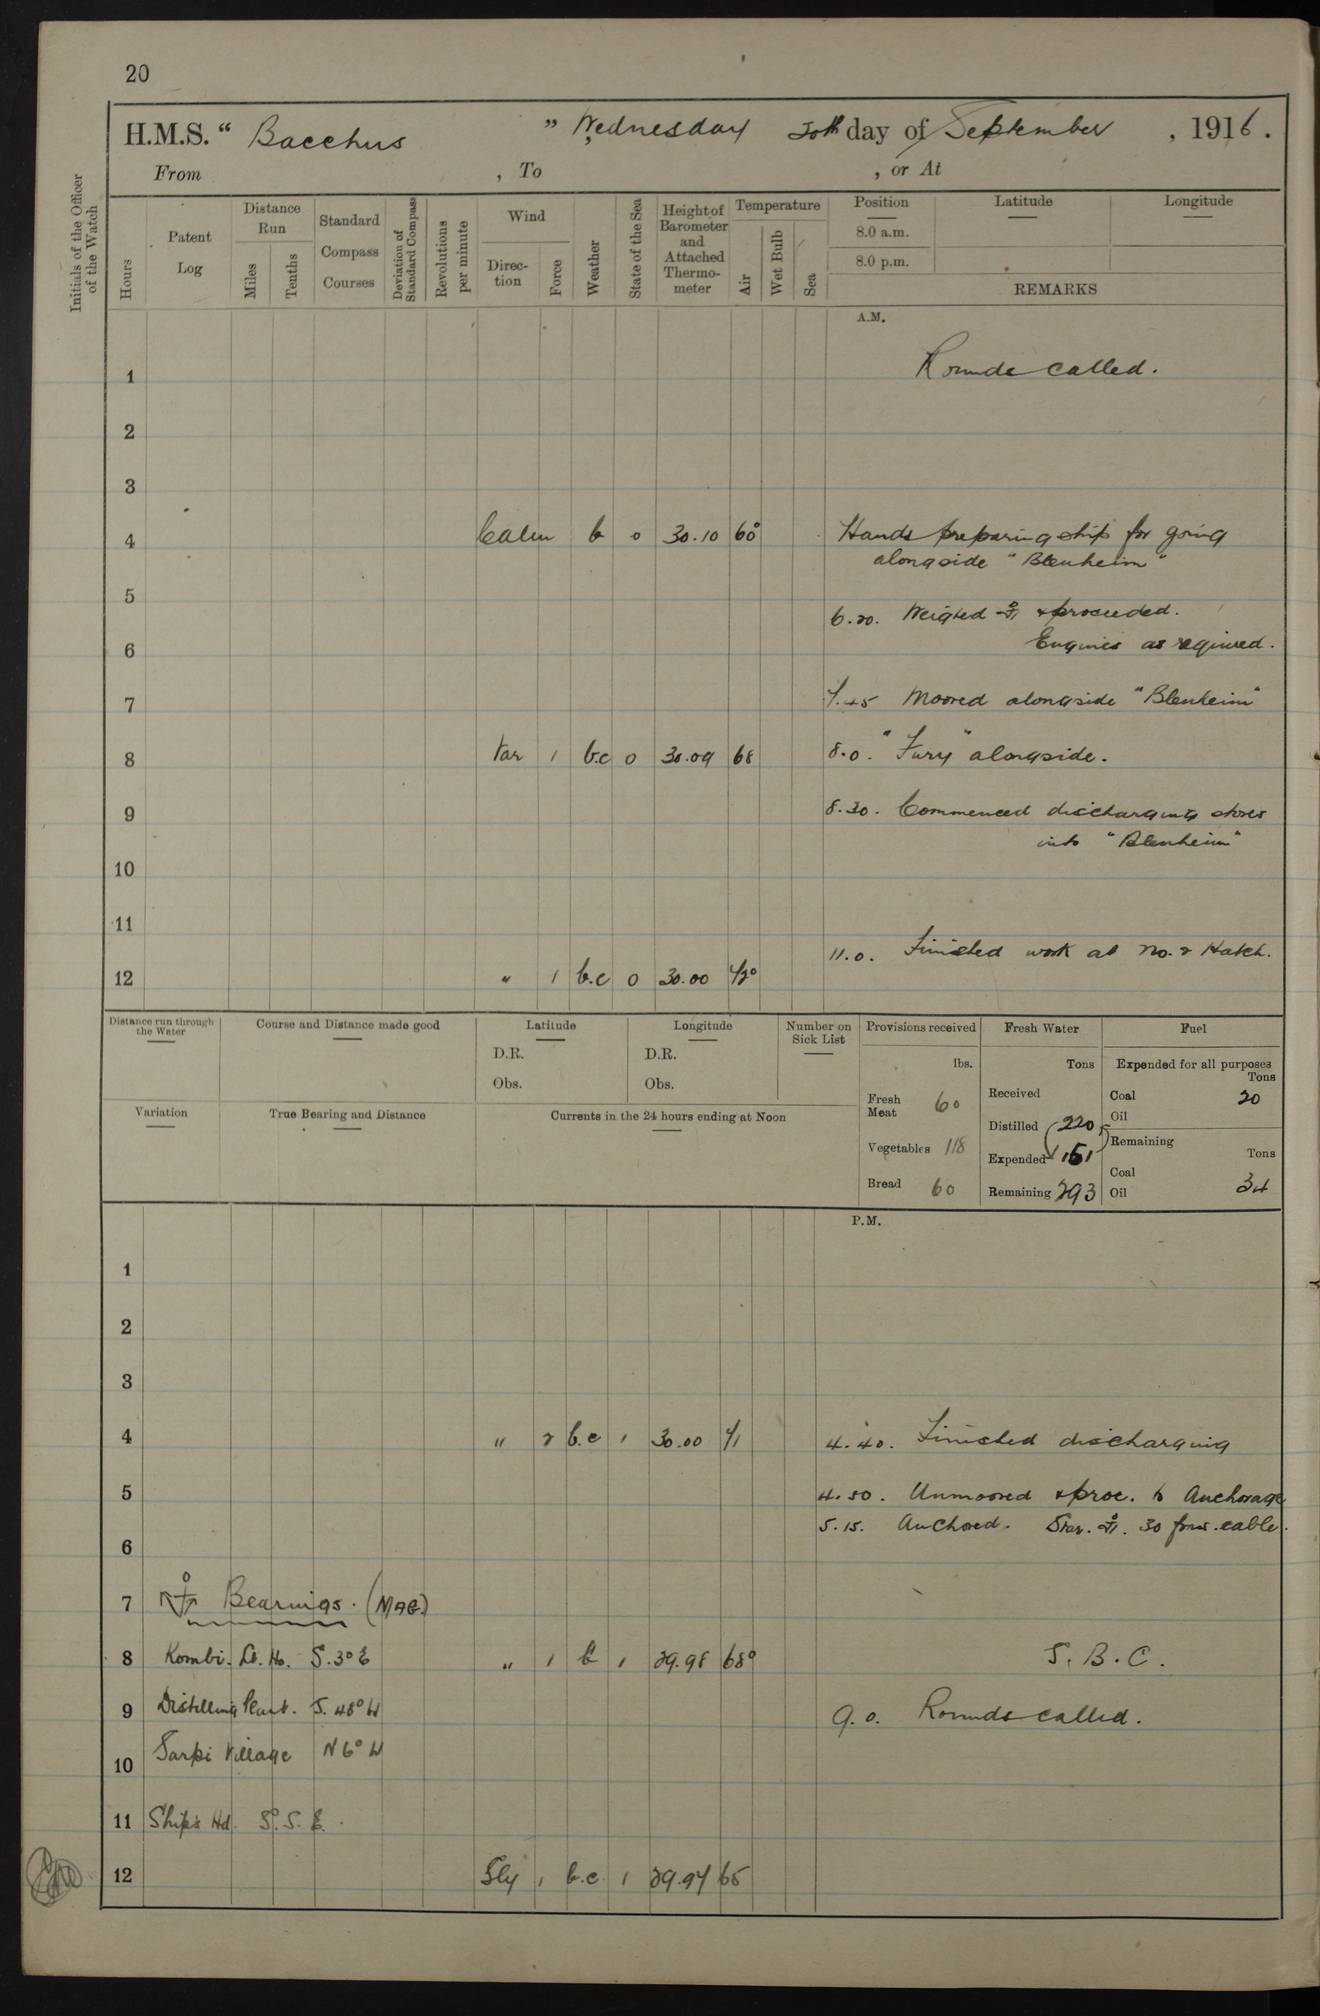 20
H.M.S. " Bacchus " Wednesday 20th day of September , 1916.
From , To , or At
Initials of the Officer of the Watch
Hours
Patent Log
Distance Run
Miles
Tenths
Standard Compass Courses
Deviation of Standard Compass
Revolutions per minute
Wind
Direction
Force
Weather
State of the Sea
Height of Barometer and Attached Thermometer
Temperature
Air
Wet Bulb
Sea
Position
8.0 a.m.
8.0 p.m.
Latitude
Longitude
REMARKS
A.M.
1 Rounds called.
2
3
4 Calm b 0 30.10 60° Hands preparing ship for going
alongside "Blenheim"
5
6.20. Weighed & proceeded.
6 Engines as required.
7 7.45 Moored alongside "Blenheim"
8 Var 1 b.c 0 30.09 68 8.0. "Fury" alongside.
9 8.30. Commenced discharging stores
into "Blenheim"
10
11
11.0. Finished work at No. 2 Hatch.
12 " 1 b.c 0 30.00 72°
Distance run through the Water
Course and Distance made good
Latitude
D.R.
Obs.
Longitude
D.R.
Obs.
Number on Sick List
Provisions received
lbs.
Fresh Meat 60
Vegetables 118
Bread 60
Fresh Water
Tons
Received
Distilled 220
Expended 151
Remaining 293
Fuel
Expended for all purposes
Tons
Coal 20
Oil
Remaining
Tons
Coal
Oil 34
Variation
True Bearing and Distance
Currents in the 24 hours ending at Noon
P.M.
1
2
3
4 " 2 b.c 1 30.00 71 4.40. Finished discharging
5 4.50. Unmoored & proc. to Anchorage
5.15. Anchored. Star. 30 fms. cable.
6
7 Bearings. (MAG.)
8 Kombi. Lt. Ho. S. 3° E " 1 b 1 29.98 68° S. B. C.
9 Distilling Plant. S. 48° W 9.0. Rounds called.
10 Sarpi Village N 6° W
11 Ship's Hd. S. S. E.
12 Sly 1 b.c 1 29.97 65